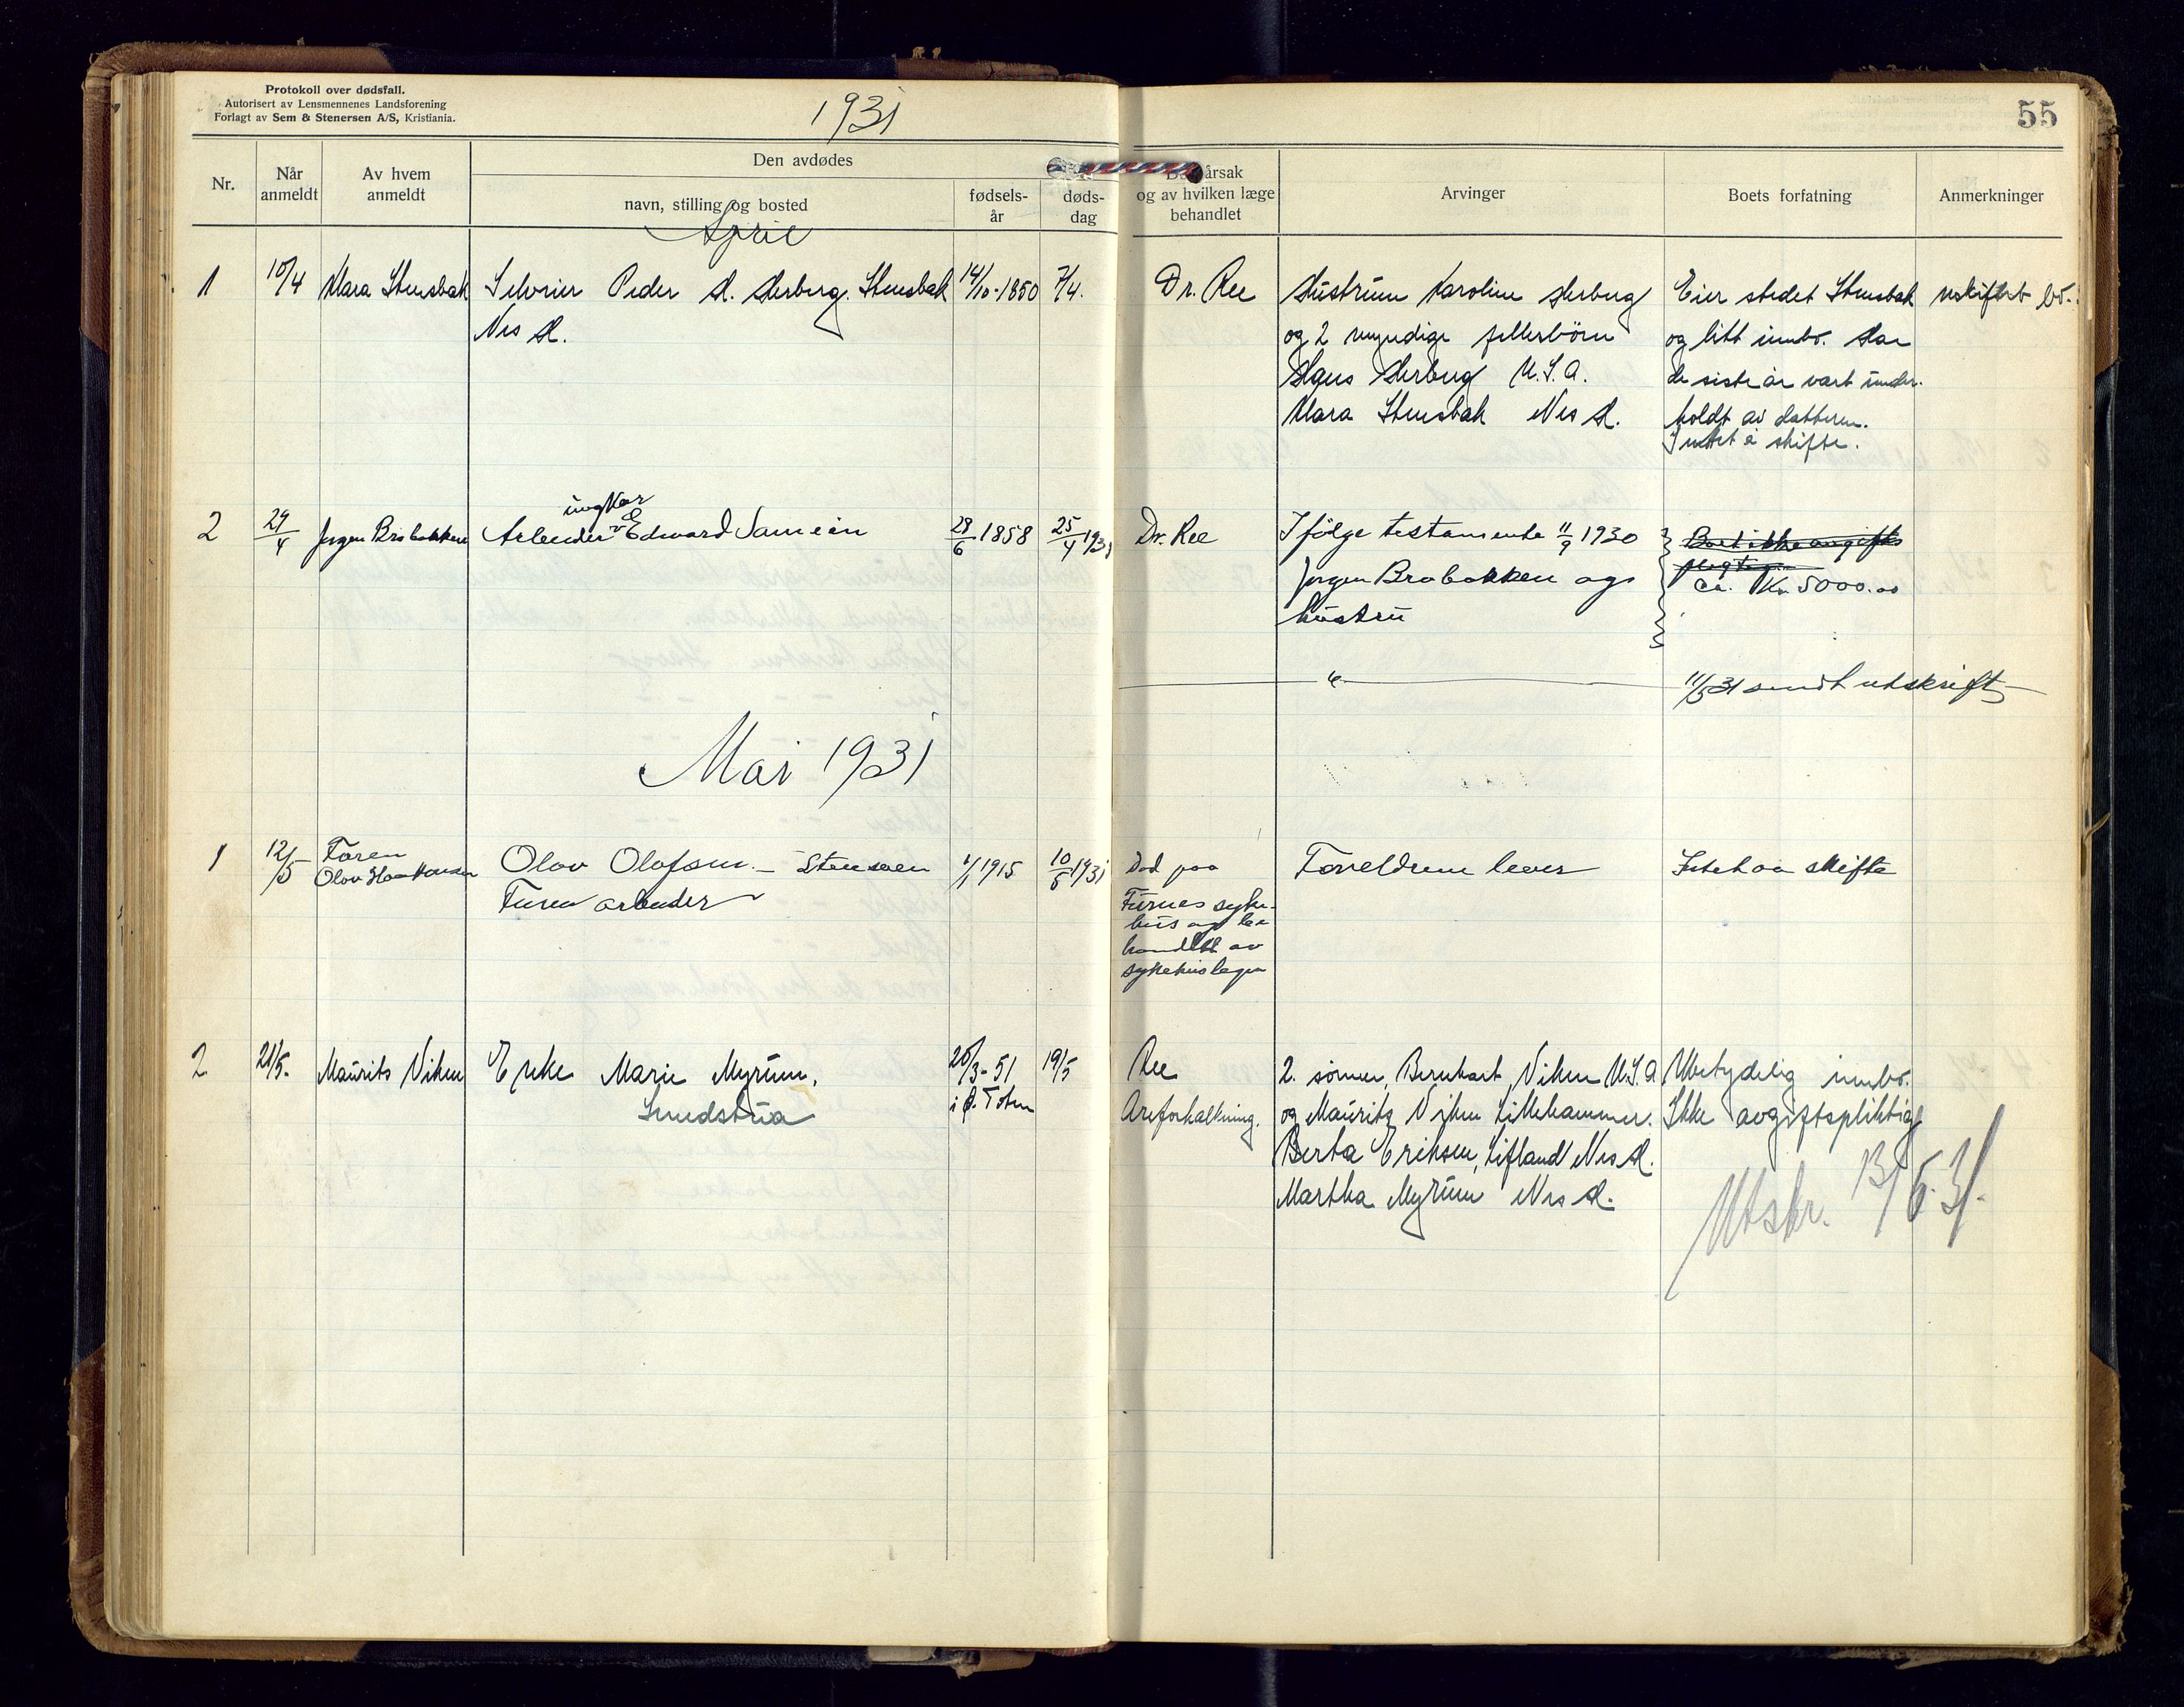 Protokoll over dødsfall.
Autorisert av Lensmennenes Landsforening
Forlagt av Sem & Stenersen A/S, Kristiania.
1931
55
Nr.
Når anmeldt
Av hvem anmeldt
Den avdødes
navn, stilling og bosted
fødsels-år
døds-dag
årsak
og av hvilken læge
behandlet
Arvinger
Boets forfatning
Anmerkninger
April
1 10/4 Klara Stensbak Selveier Peder H. Herberg. Stensbak 14/10-1850 7/4. Dr. Ree Hustruen Karoline Herberg Eier stedet Stensbak uskiftet bo.
Nes H. og 2 myndige fellesbörn og litt innbo. Har
Hans Herberg U.S.A. de siste år vært under-
Klara Stensbak Nes H. holdt av datteren.
Intet å skifte.
ungkar
2 29/4 Jørgen Brobakken Arbeider Edward 28/6 1858 25/4 1931 Dr. Ree Ifölge testamente 11/9 1930 Boet ikke avgifts
pligtig
Jørgen Brobakken ogs ca. Kr. 5000.00
hustru
" 11/5 31 sendt utskrift
Mai 1931
1 12/5 Faren Olov Olofsen - Stensveen 1/1 1915 10/5 1931 Død paa Foreldrene lever Intet aa skifte
Olov Haakonsen Furnes syke-
arbeider hus og be-
handlet av
sykehuslegen
2 21/5. Maurits Viken Enke Marie Myrum, 20/3-51 19/5 Ree 2. sönner, Bernhart Viken U.S.A Ubetydelig innbo.
Sundstua i Ø. Toten Areforkalkning. og Mauritz Viken Lillehammer. Ikke avgiftspliktig
Berta Eriksen, Lifland Nes H.
Martha Myrum Nes H.
Utskr. 13/6.31.